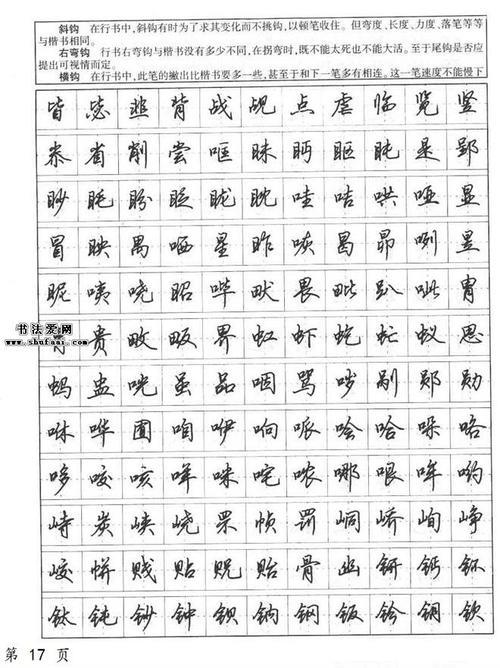 斜钩 在行书中，斜钩有时为了求其变化而不挑钩，以顿笔收住。但弯度、长度、力度、落笔等等
与楷书相同。
右弯钩 行书右弯钩与楷书没有多少不同，在拐弯时，既不能太死也不能大活。至于尾钩是否应
提出可视情而定。
横钩 在行书中，此笔的撇出比楷书要多一些，甚至于和下一笔多有相连。这一笔速度不能慢下
皆毖韭背战觇点虐临览竖
尜省削尝哐昧眄眍盹是郢
眇眊盼眨昽眈哇咭哄哑显
冒映禺哂星昨咴曷昴咧昱
昵咦哓昭哔畎畏毗趴呲胄
胃贵畋畈界虹虾虼虻蚁思
蚂盅咣虽品咽骂哕剐郧勋
咻哗囿咱咿响哌哙哈哚咯
哆咬咳咩咪咤哝哪哏哞哟
峙炭峡峣罘帧罚峒峤峋峥
峧帡贱贴贶贻骨幽钘钙钚
钛钝钞钟钡钠钢钣钤钥钦
书法爱网
www.shufaai.com
第 17 页